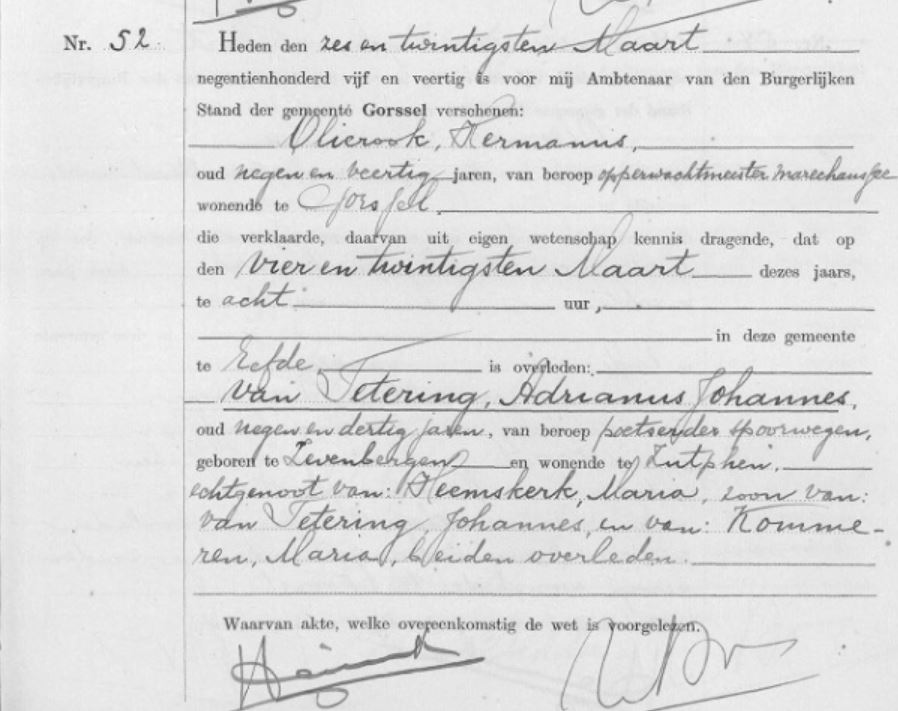 Nr. 52
Heden den zes en twintigsten Maart
negentienhonderd vijf en veertig is voor mij Ambtenaar van den Burgerlijken
Stand der gemeente Gorssel verschenen:
Olierook, Hermanus,
oud negen en veertig jaren, van beroep opperwachtmeester marechaussee
wonende te Gorssel,
die verklaarde, daarvan uit eigen wetenschap kennis dragende, dat op
den vier en twintigsten Maart dezes jaars,
te acht uur,
in deze gemeente
te Eefde, is overleden:
van Tetering, Adrianus Johannes,
oud negen en dertig jaren, van beroep poetser der spoorwegen,
geboren te Zevenbergen en wonende te Zutphen,
echtgenoot van: Heemskerk, Maria, zoon van:
van Tetering, Johannes, en van: Komme-
ren, Maria, beiden overleden.
Waarvan akte, welke overeenkomstig de wet is voorgelezen.